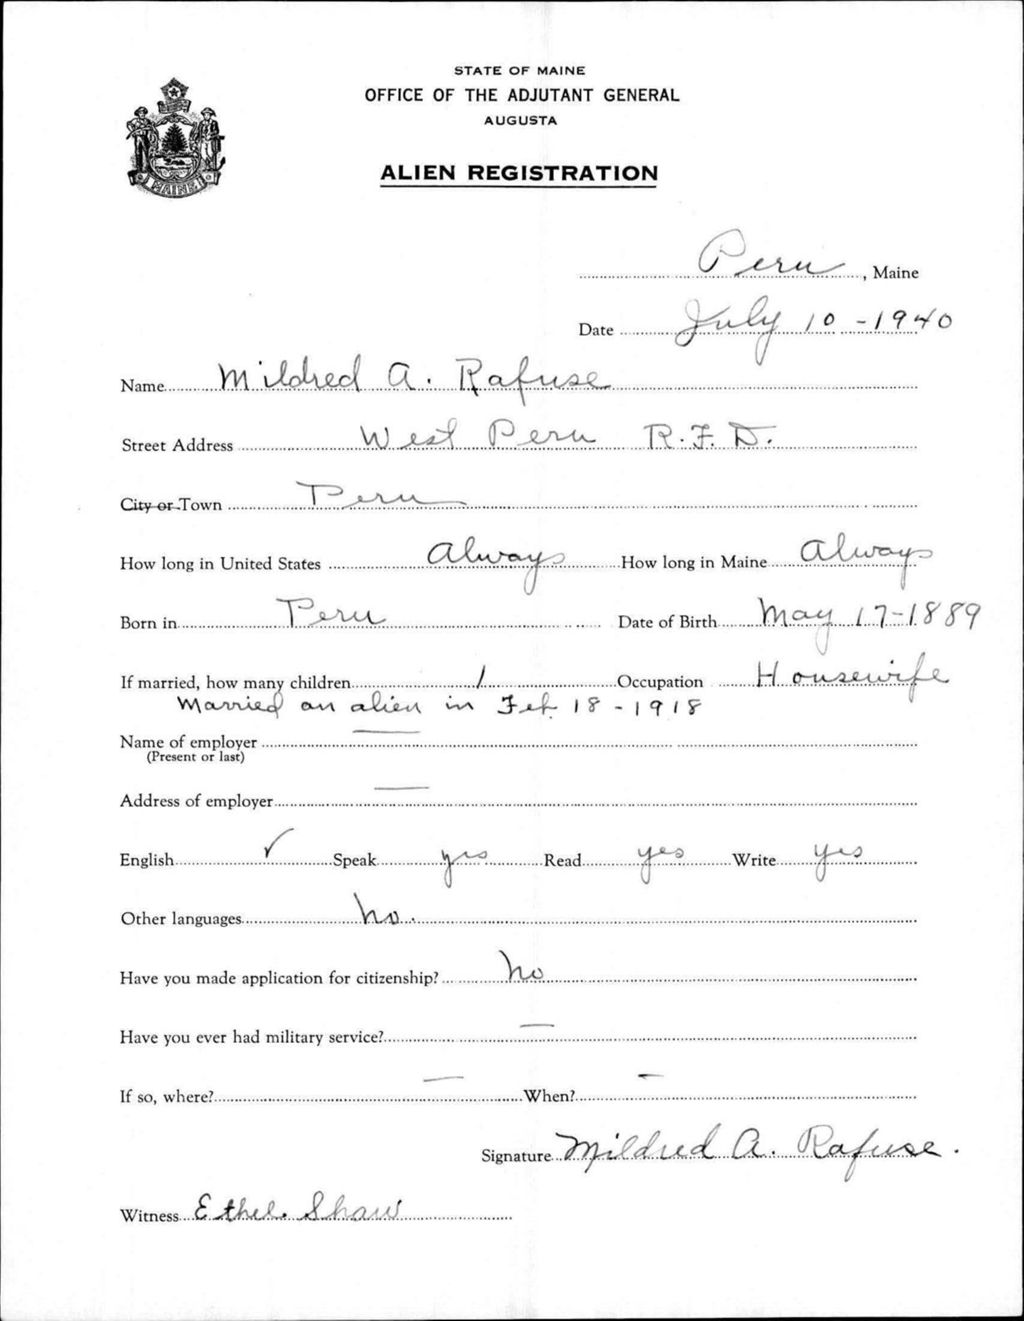 STATE OF MAINE
OFFICE OF THE ADJUTANT GENERAL
AUGUSTA
ALIEN REGISTRATION
MAINE
Peru, Maine
Date July 10-1940
Name Mildred A. Rafuse
Street Address West Peru R.F.D.
City or Town Peru
How long in United States Always How long in Maine Always
Born in Peru Date of Birth May 17-1889
If married, how many children 1 Occupation Housewife
Married an alien in Feb 18-1918
Name of employer —
(Present or last)
Address of employer —
English ✓ Speak yes Read yes Write yes
Other languages No.
Have you made application for citizenship? No
Have you ever had military service? —
If so, where? — When? —
Signature Mildred A. Rafuse.
Witness Ethel. Shaw